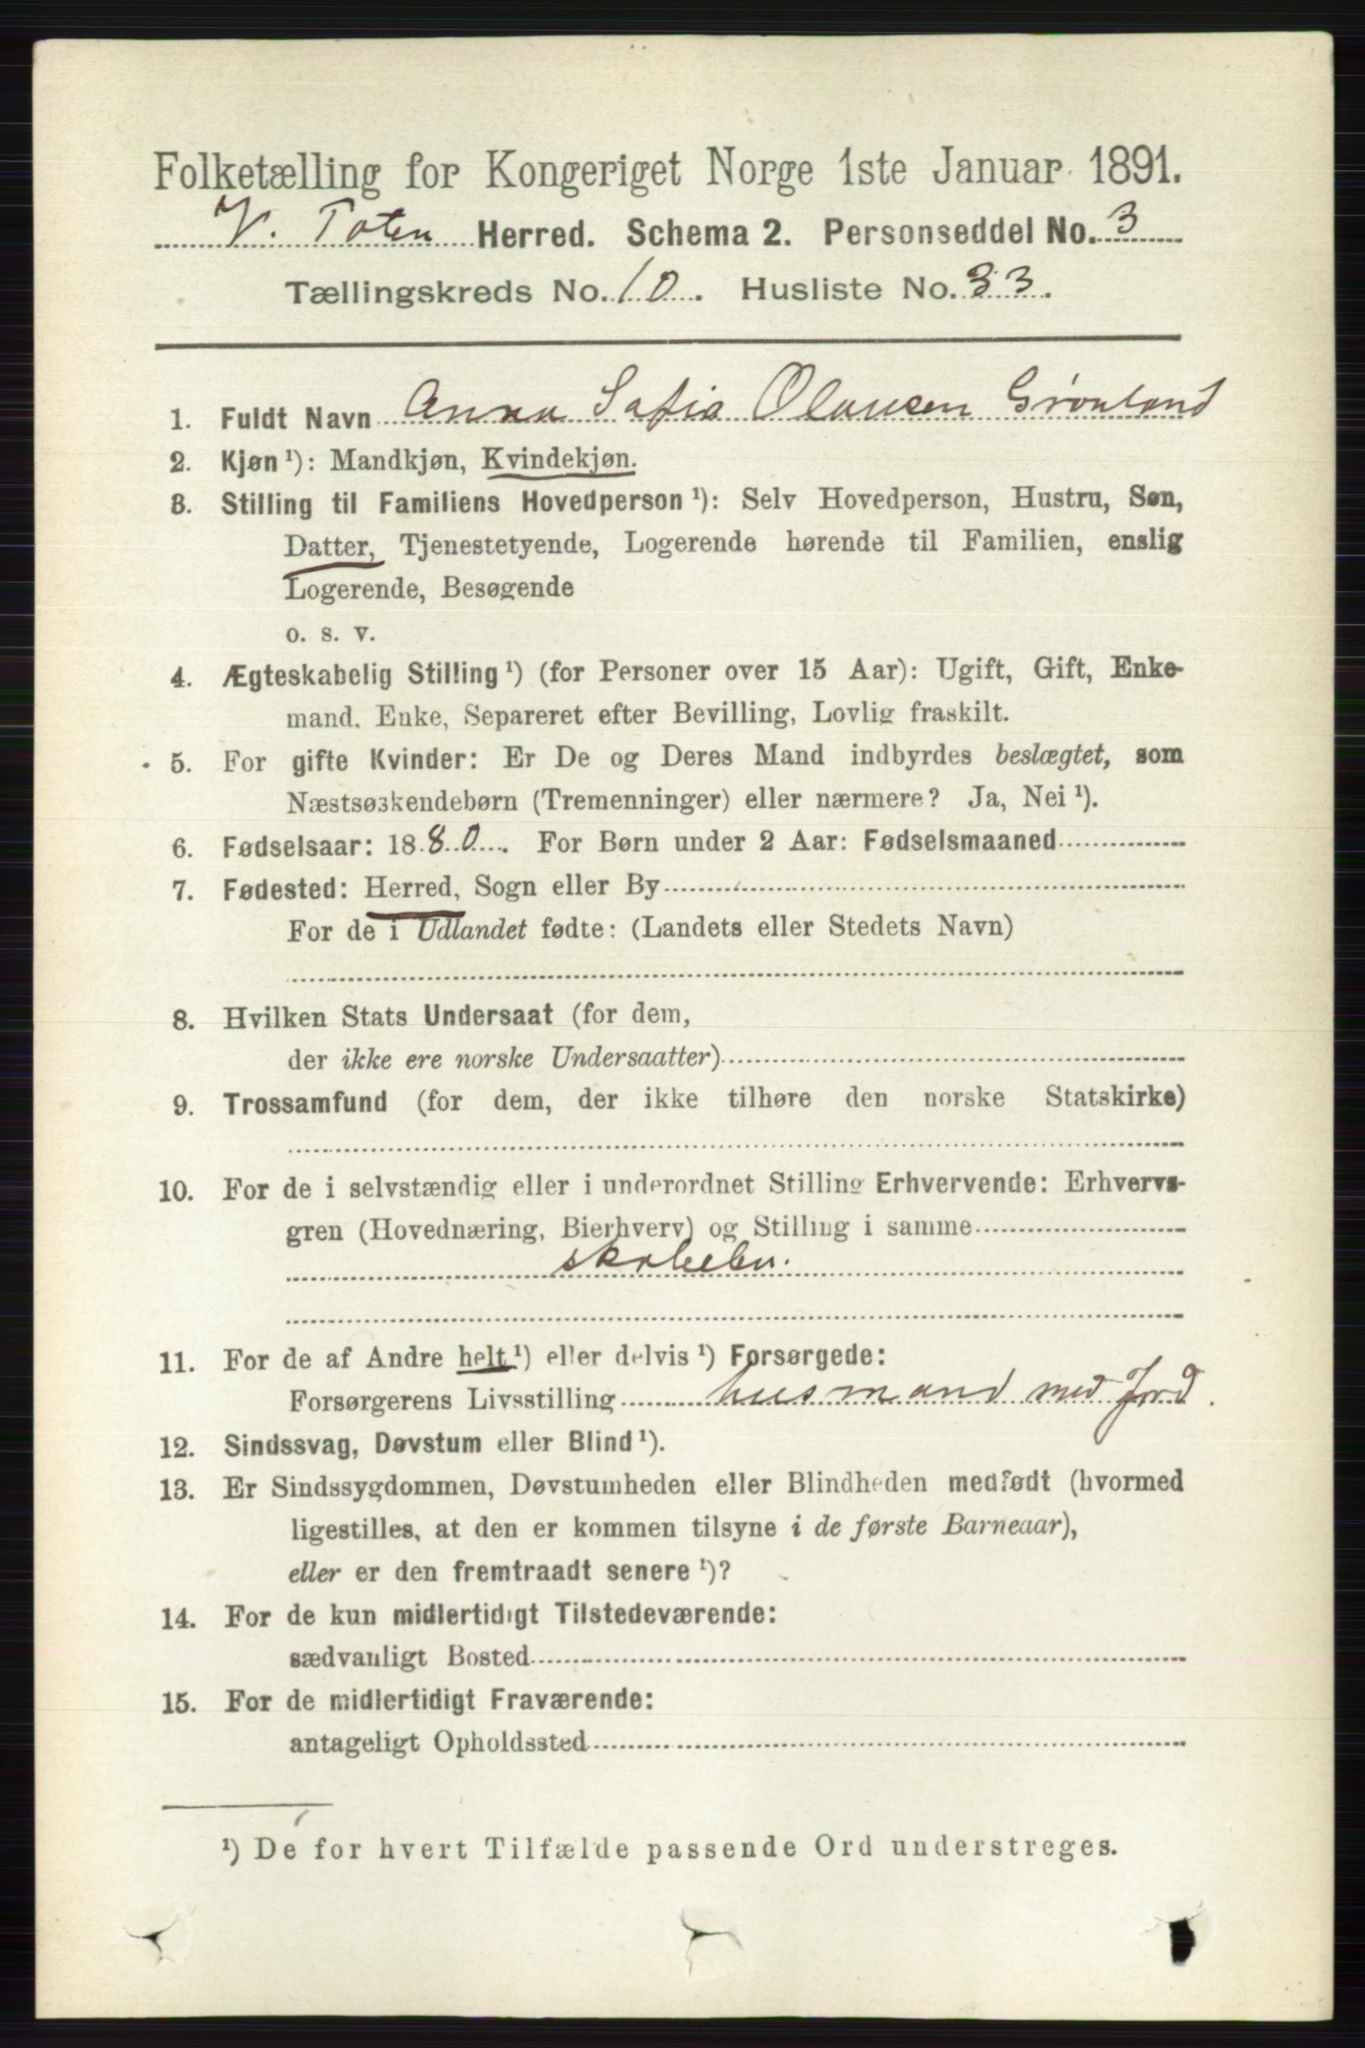 Folketælling for Kongeriget Norge 1ste Januar 1891.
V. Toten Herred. Schema 2. Personseddel No. 3
Tællingskreds No. 10. Husliste No. 33.
1. Fuldt Navn Anna Safia Olausen Grønland
2. Kjøn ¹): Mandkjøn, Kvindekjøn.
3. Stilling til Familiens Hovedperson ¹): Selv Hovedperson, Hustru, Søn,
Datter, Tjenestetyende, Logerende hørende til Familien, enslig
Logerende, Besøgende
o. s. v.
4. Ægteskabelig Stilling ¹) (for Personer over 15 Aar): Ugift, Gift, Enke-
mand, Enke, Separeret efter Bevilling, Lovlig fraskilt.
5. For gifte Kvinder: Er De og Deres Mand indbyrdes beslægtet, som
Næstsøskendebørn (Tremenninger) eller nærmere? Ja, Nei ¹).
6. Fødselsaar: 1880. For Børn under 2 Aar: Fødselsmaaned
7. Fødested: Herred, Sogn eller By
For de i Udlandet fødte: (Landets eller Stedets Navn)
8. Hvilken Stats Undersaat (for dem,
der ikke ere norske Undersaatter)
9. Trossamfund (for dem, der ikke tilhøre den norske Statskirke)
10. For de i selvstændig eller i underordnet Stilling Erhvervende: Erhvervs-
gren (Hovednæring, Bierhverv) og Stilling i samme
11. For de af Andre helt ¹) eller delvis ¹) Forsørgede:
Forsørgerens Livsstilling husmand med Jord.
12. Sindssvag, Døvstum eller Blind ¹).
13. Er Sindssygdommen, Døvstumheden eller Blindheden medfødt (hvormed
ligestilles, at den er kommen tilsyne i de første Barneaar),
eller er den fremtraadt senere ¹)?
14. For de kun midlertidigt Tilstedeværende:
sædvanligt Bosted
15. For de midlertidigt Fraværende:
antageligt Opholdssted
¹) De for hvert Tilfælde passende Ord understreges.